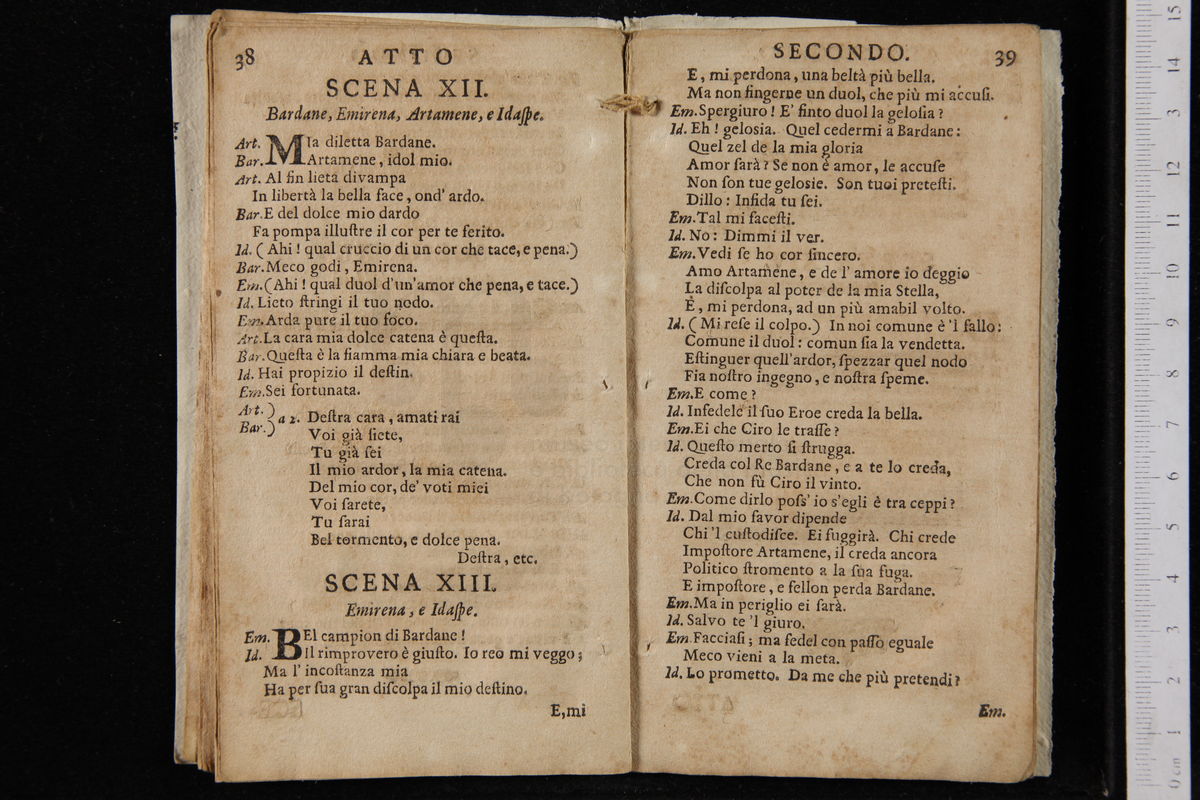 38
ATTO
SCENA XII.
Bardane, Emirena, Artamene, e Idaſpe.
Art. MIa diletta Bardane.
Bar. Artamene, idol mio.
Art. Al fin lieta divampa
In libertà la bella face, ond' ardo.
Bar. E del dolce mio dardo
Fa pompa illuſtre il cor per te ferito.
Id. ( Ahi ! qual cruccio di un cor che tace, e pena.)
Bar. Meco godi, Emirena.
Em. (Ahi ! qual duol d'un'amor che pena, e tace.)
Id. Lieto ſtringi il tuo nodo.
Em. Arda pure il tuo foco.
Art. La cara mia dolce catena è queſta.
Bar. Queſta è la fiamma mia chiara e beata.
Id. Hai propizio il deſtin.
Em. Sei fortunata.
Art. ) a 2. Deſtra cara, amati rai
Bar. ) Voi già ſiete,
Tu già ſei
Il mio ardor, la mia catena.
Del mio cor, de' voti miei
Voi ſarete,
Tu ſarai
Bel tormento, e dolce pena.
Deſtra, etc.
SCENA XIII.
Emirena, e Idaſpe.
Em. BEl campion di Bardane !
Id. Il rimprovero è giuſto. Io reo mi veggo;
Ma l' incoſtanza mia
Ha per ſua gran diſcolpa il mio deſtino.
E, mi
SECONDO.
39
E, mi perdona, una beltà più bella.
Ma non fingerne un duol, che più mi accuſi.
Em. Spergiuro ! E' finto duol la geloſia ?
Id. Eh ! geloſia. Quel cedermi a Bardane :
Quel zel de la mia gloria
Amor ſarà ? Se non è amor, le accuſe
Non ſon tue geloſie. Son tuoi preteſti.
Dillo : Infida tu ſei.
Em. Tal mi faceſti.
Id. No : Dimmi il ver.
Em. Vedi ſe ho cor ſincero.
Amo Artamene, e de l' amore io deggio
La diſcolpa al poter de la mia Stella,
È, mi perdona, ad un più amabil volto.
Id. ( Mi reſe il colpo.) In noi comune è 'l fallo :
Comune il duol : comun ſia la vendetta.
Eſtinguer quell'ardor, ſpezzar quel nodo
Fia noſtro ingegno, e noſtra ſpeme.
Em. E come ?
Id. Infedele il ſuo Eroe creda la bella.
Em. Ei che Ciro le traſſe ?
Id. Queſto merto ſi ſtrugga.
Creda col Re Bardane, e a te lo creda,
Che non fù Ciro il vinto.
Em. Come dirlo poſs' io s'egli è tra ceppi ?
Id. Dal mio favor dipende
Chi 'l cuſtodiſce. Ei fuggirà. Chi crede
Impoſtore Artamene, il creda ancora
Politico ſtromento a la ſua fuga.
E impoſtore, e fellon perda Bardane.
Em. Ma in periglio ei ſarà.
Id. Salvo te 'l giuro.
Em. Facciaſi ; ma fedel con paſſo eguale
Meco vieni a la meta.
Id. Lo prometto. Da me che più pretendi ?
Em.
0 cm 1 2 3 4 5 6 7 8 9 10 11 12 13 14 15